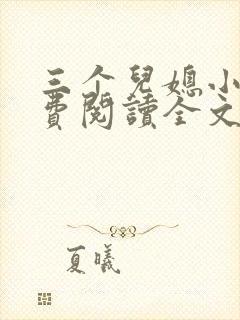 三个兒媳小
費閱讀全文
夏曦